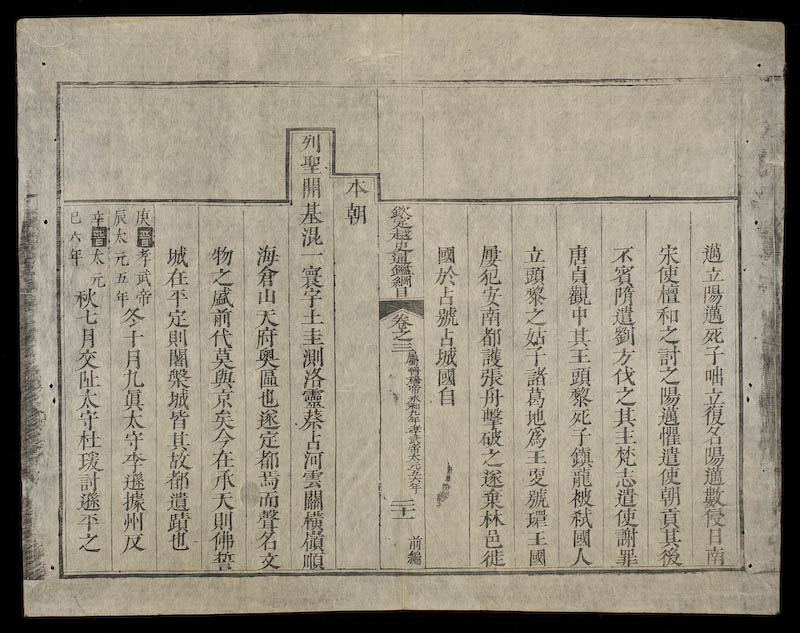 邁立陽邁死子咄立復名陽邁數侵日南
宋使檀和之討之陽邁懼遣使朝貢其後
不賓隋遣劉方伐之其主梵志遣使謝罪
唐貞觀中其王頭黎死子鎮龍被弒國人
立頭黎之姑子諸葛地爲王更號環王國
屢犯安南都護張舟擊破之遂棄林邑徙
國於占號占城國自
欽定越史通鑑綱目 卷之三 屬晉穆帝永和九年孝武帝太元五六年 二十一 前編
本朝
列聖開基混一寰宇土圭測洛靈蔡占河雲關橫嶺順
海倉山天府奧區也遂定都焉而聲名文
物之盛前代莫與京矣今在承天則佛誓
城在平定則闍槃城皆其故都遺蹟也
庚晉孝武帝
辰太元五年
冬十月九眞太守李遜據州反
辛晉太元
巳六年
秋七月交阯太守杜瑗討遜平之